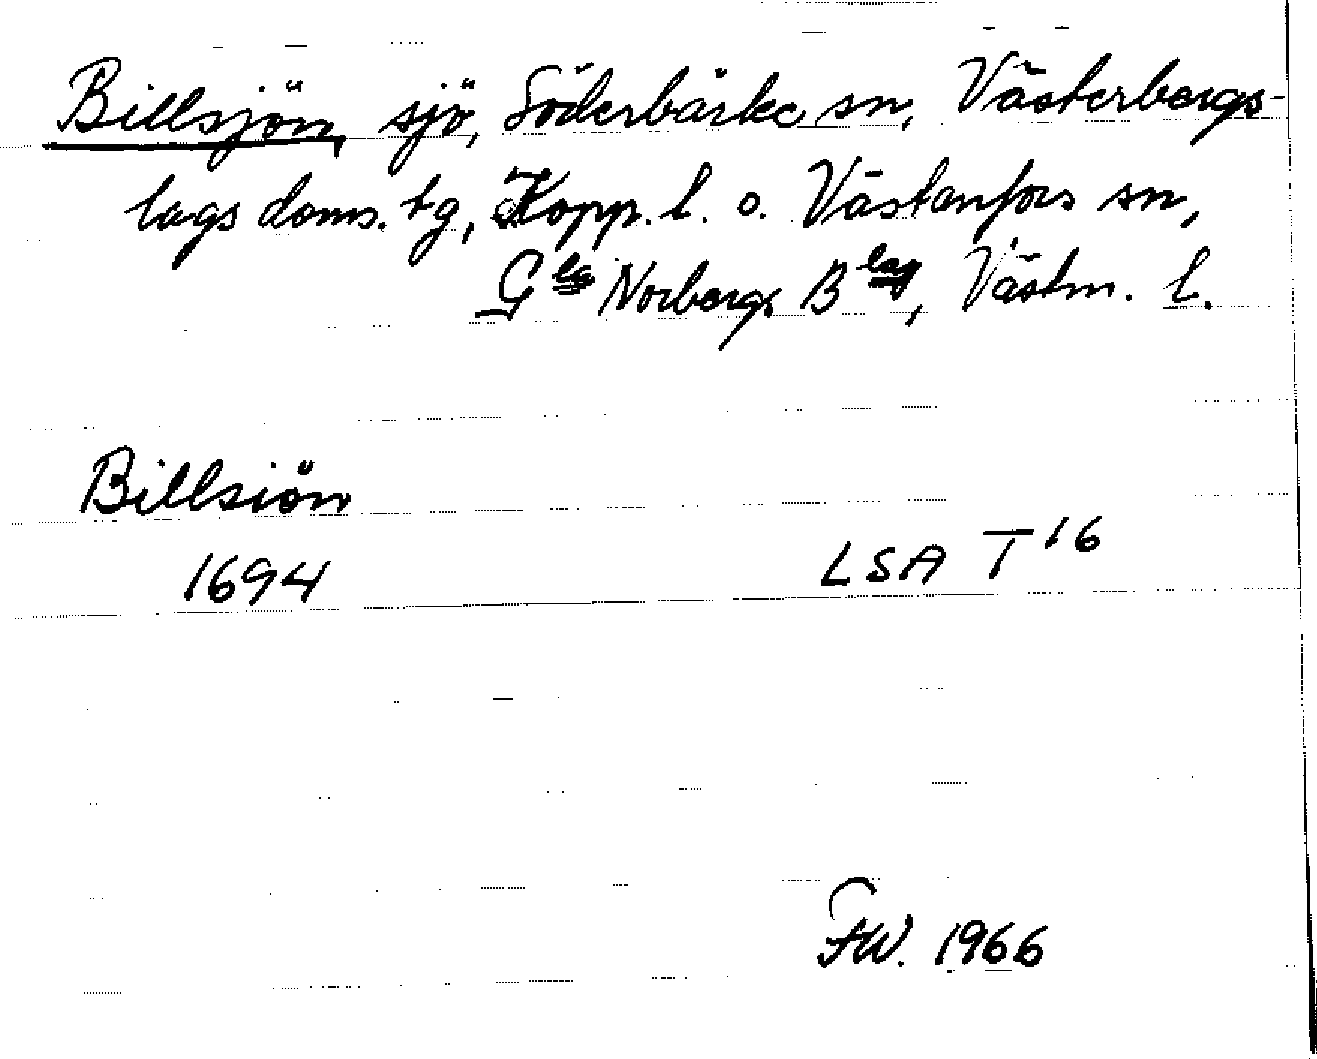 Billsjön, sjö, Söderbärke sn, Västerbergs-
lags doms. tg, Kopp. l. o. Västanfors sn,
Gla Norbergs Blag, Västm. l.
Billsiön
1694 LSA T16
FW. 1966